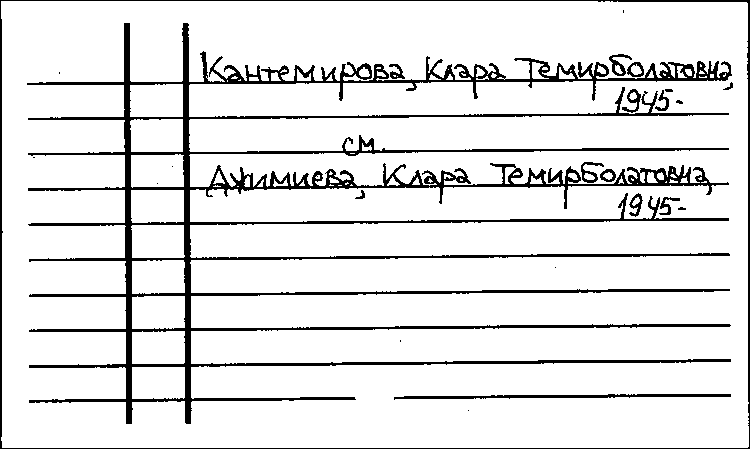 Кантемирова, Клара Темирболатовна,
1945-
см.
Джимиева, Клара Темирболатовна,
1945-